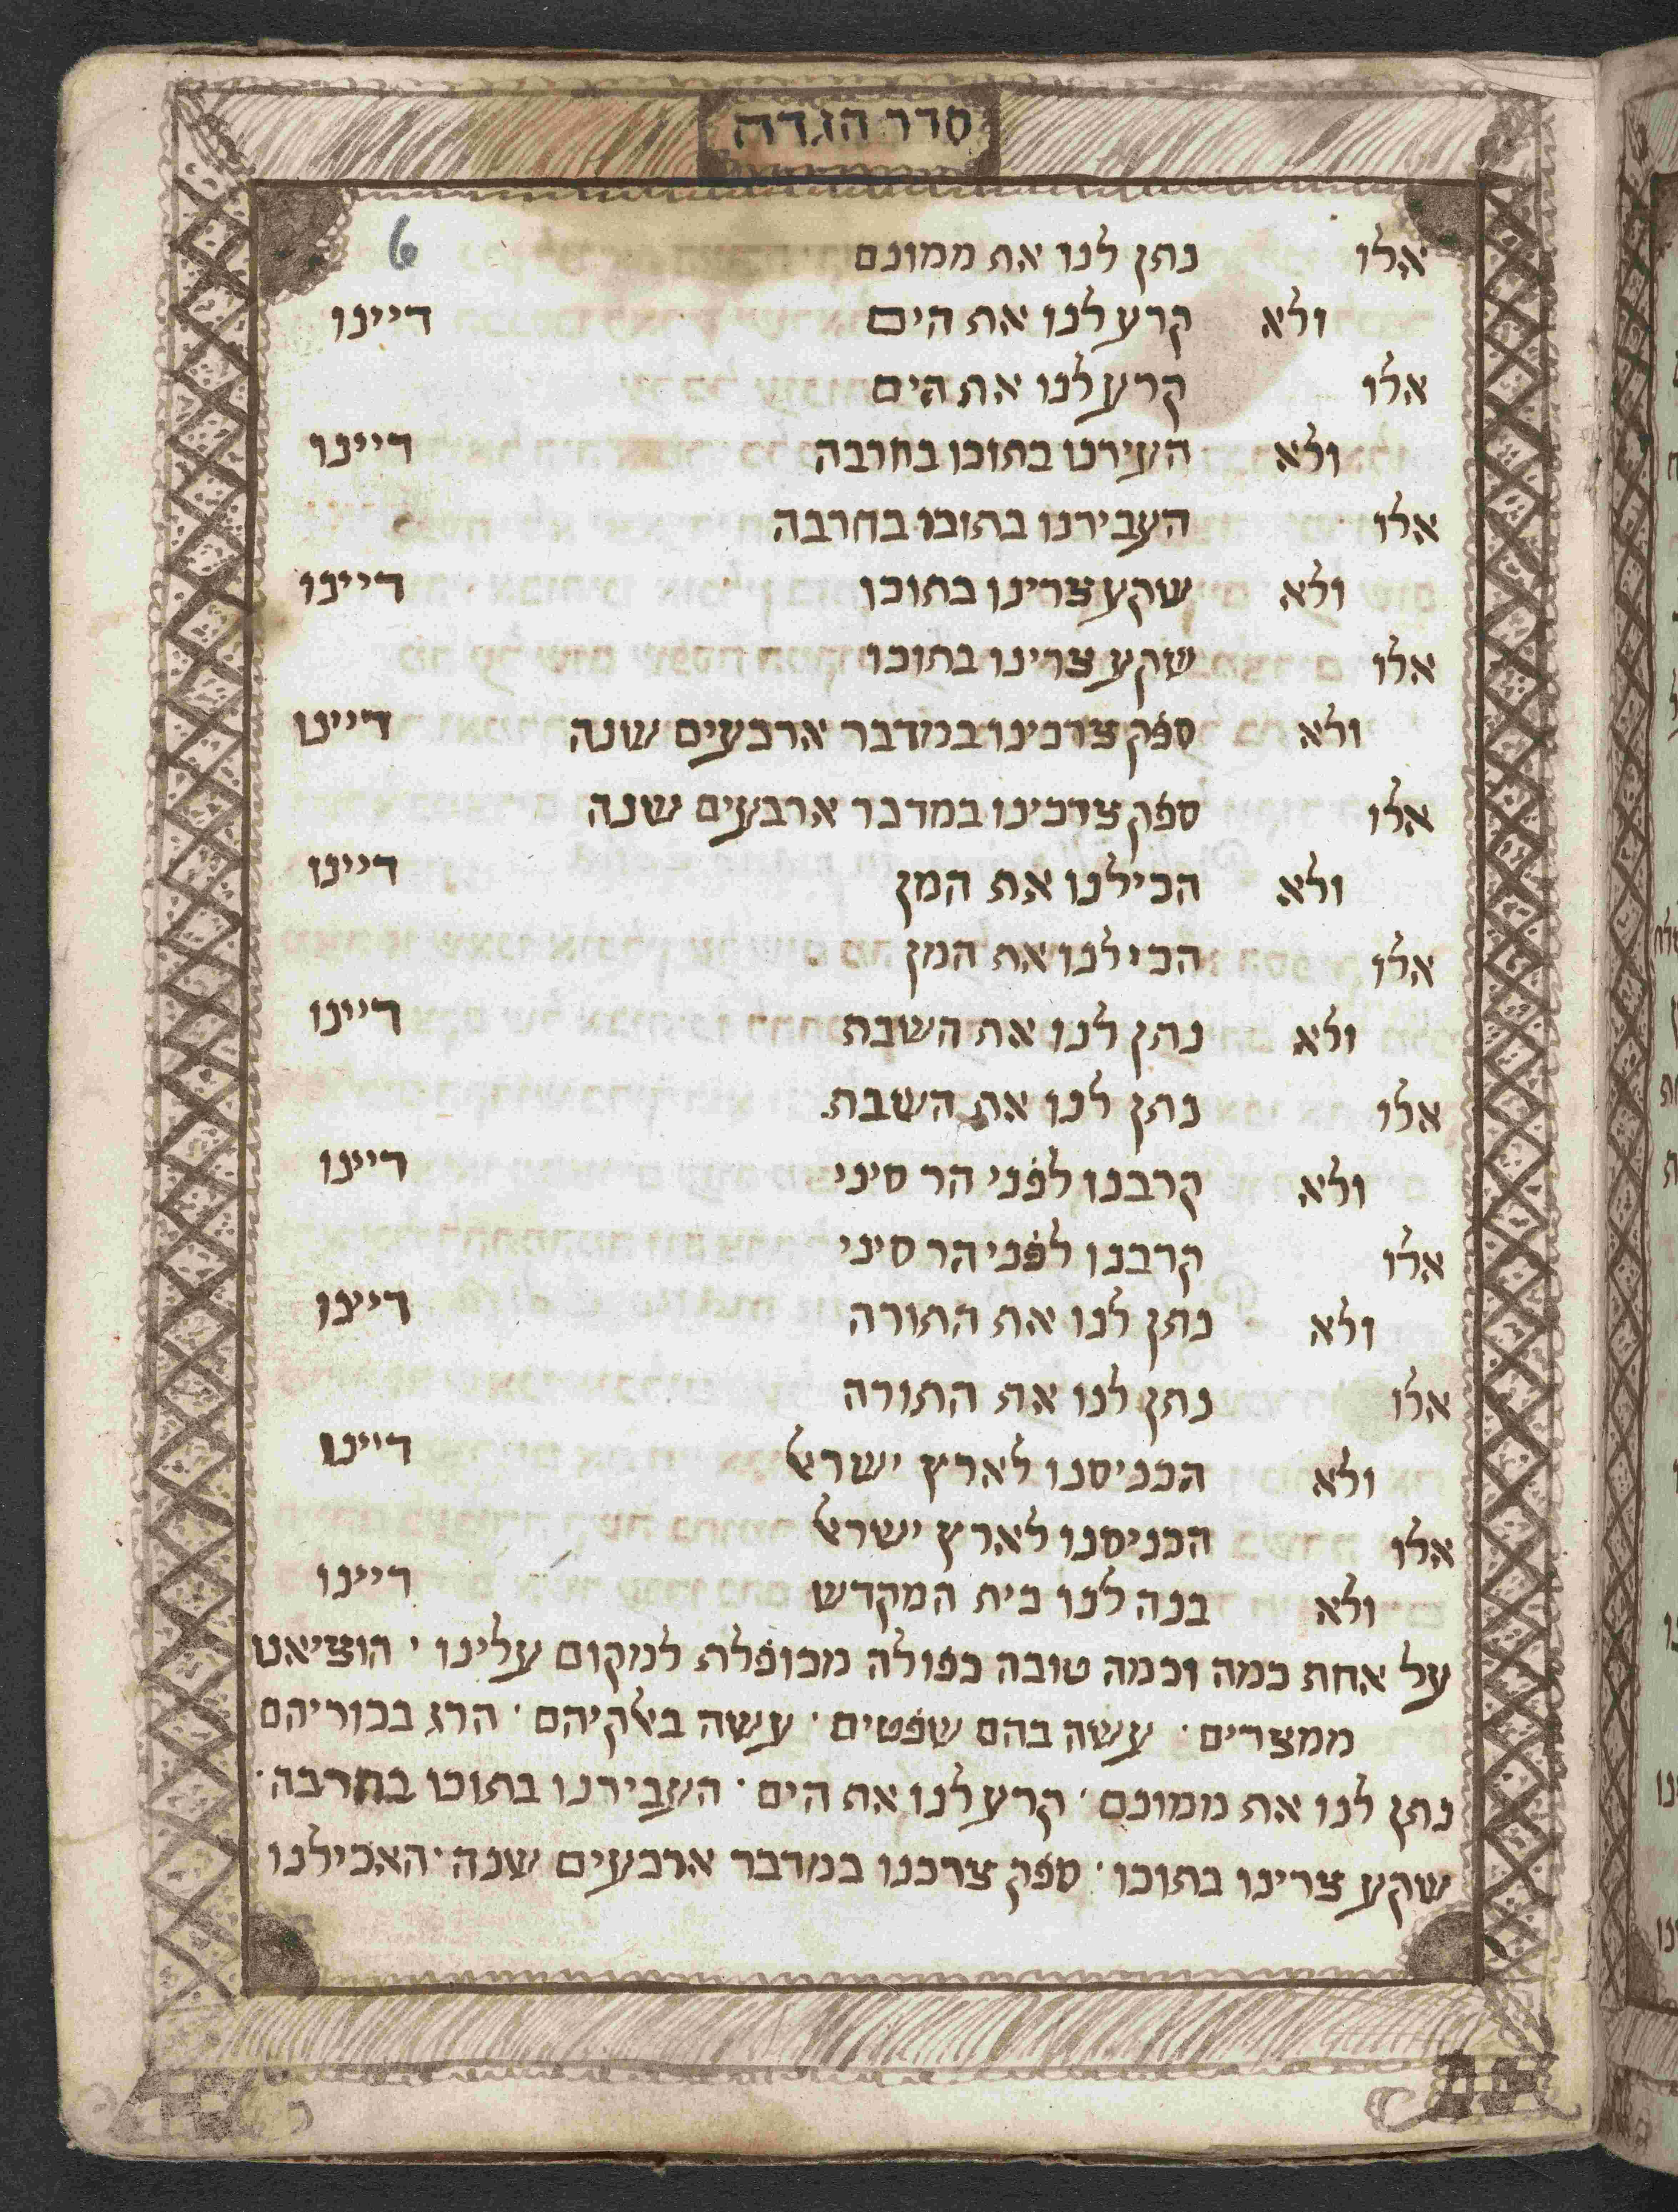 סדר הגדה
6
אלו נתן לנו את ממונם
ולא קרע לנו את הים דיינו
אלו קרע לנו את הים
ולא העירנו בתוכו בחרבה דיינו
אלו העבירנו בתוכו בחרבה
ולא שקע צרינו בתוכו דיינו
אלו שקע צרינו בתוכו
ולא ספק צרכינו במדבר ארבעים שנה דיינו
אלו ספק צרכינו במדבר ארבעים שנה
ולא הכילנו את המן דיינו
אלו הכילנו את המן
ולא נתן לנו את השבת דיינו
אלו נתן לנו את השבת
ולא קרבנו לפני הר סיני דיינו
אלו קרבנו לפני הר סיני
ולא נתן לנו את התורה דיינו
אלו נתן לנו את התורה
ולא הכניסנו לארץ ישראל דיינו
אלו הכניסנו לארץ ישראל
ולא בנה לנו בית המקדש דיינו
על אחת כמה וכמה טובה כפולה מכופלת למקום עלינו · הוציאנו
ממצרים · עשה בהם שפטים · עשה באלקיהם · הרג בכוריהם
נתן לנו את ממונם · קרע לנו את הים · העבירנו בתוכו בחרבה ·
שקע צרינו בתוכו · ספק צרכנו במדבר ארבעים שנה · האכילנו